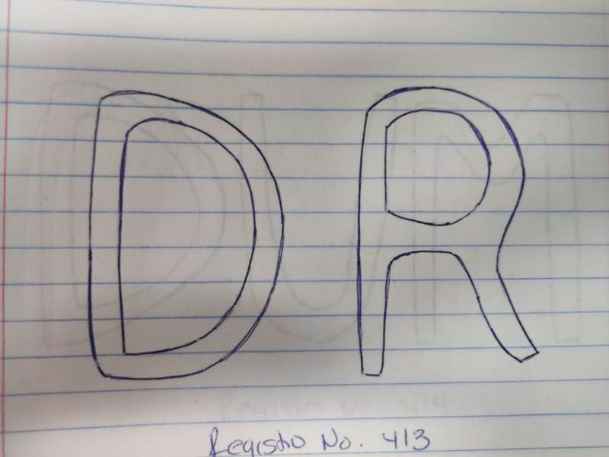 DR
Registro No. 413